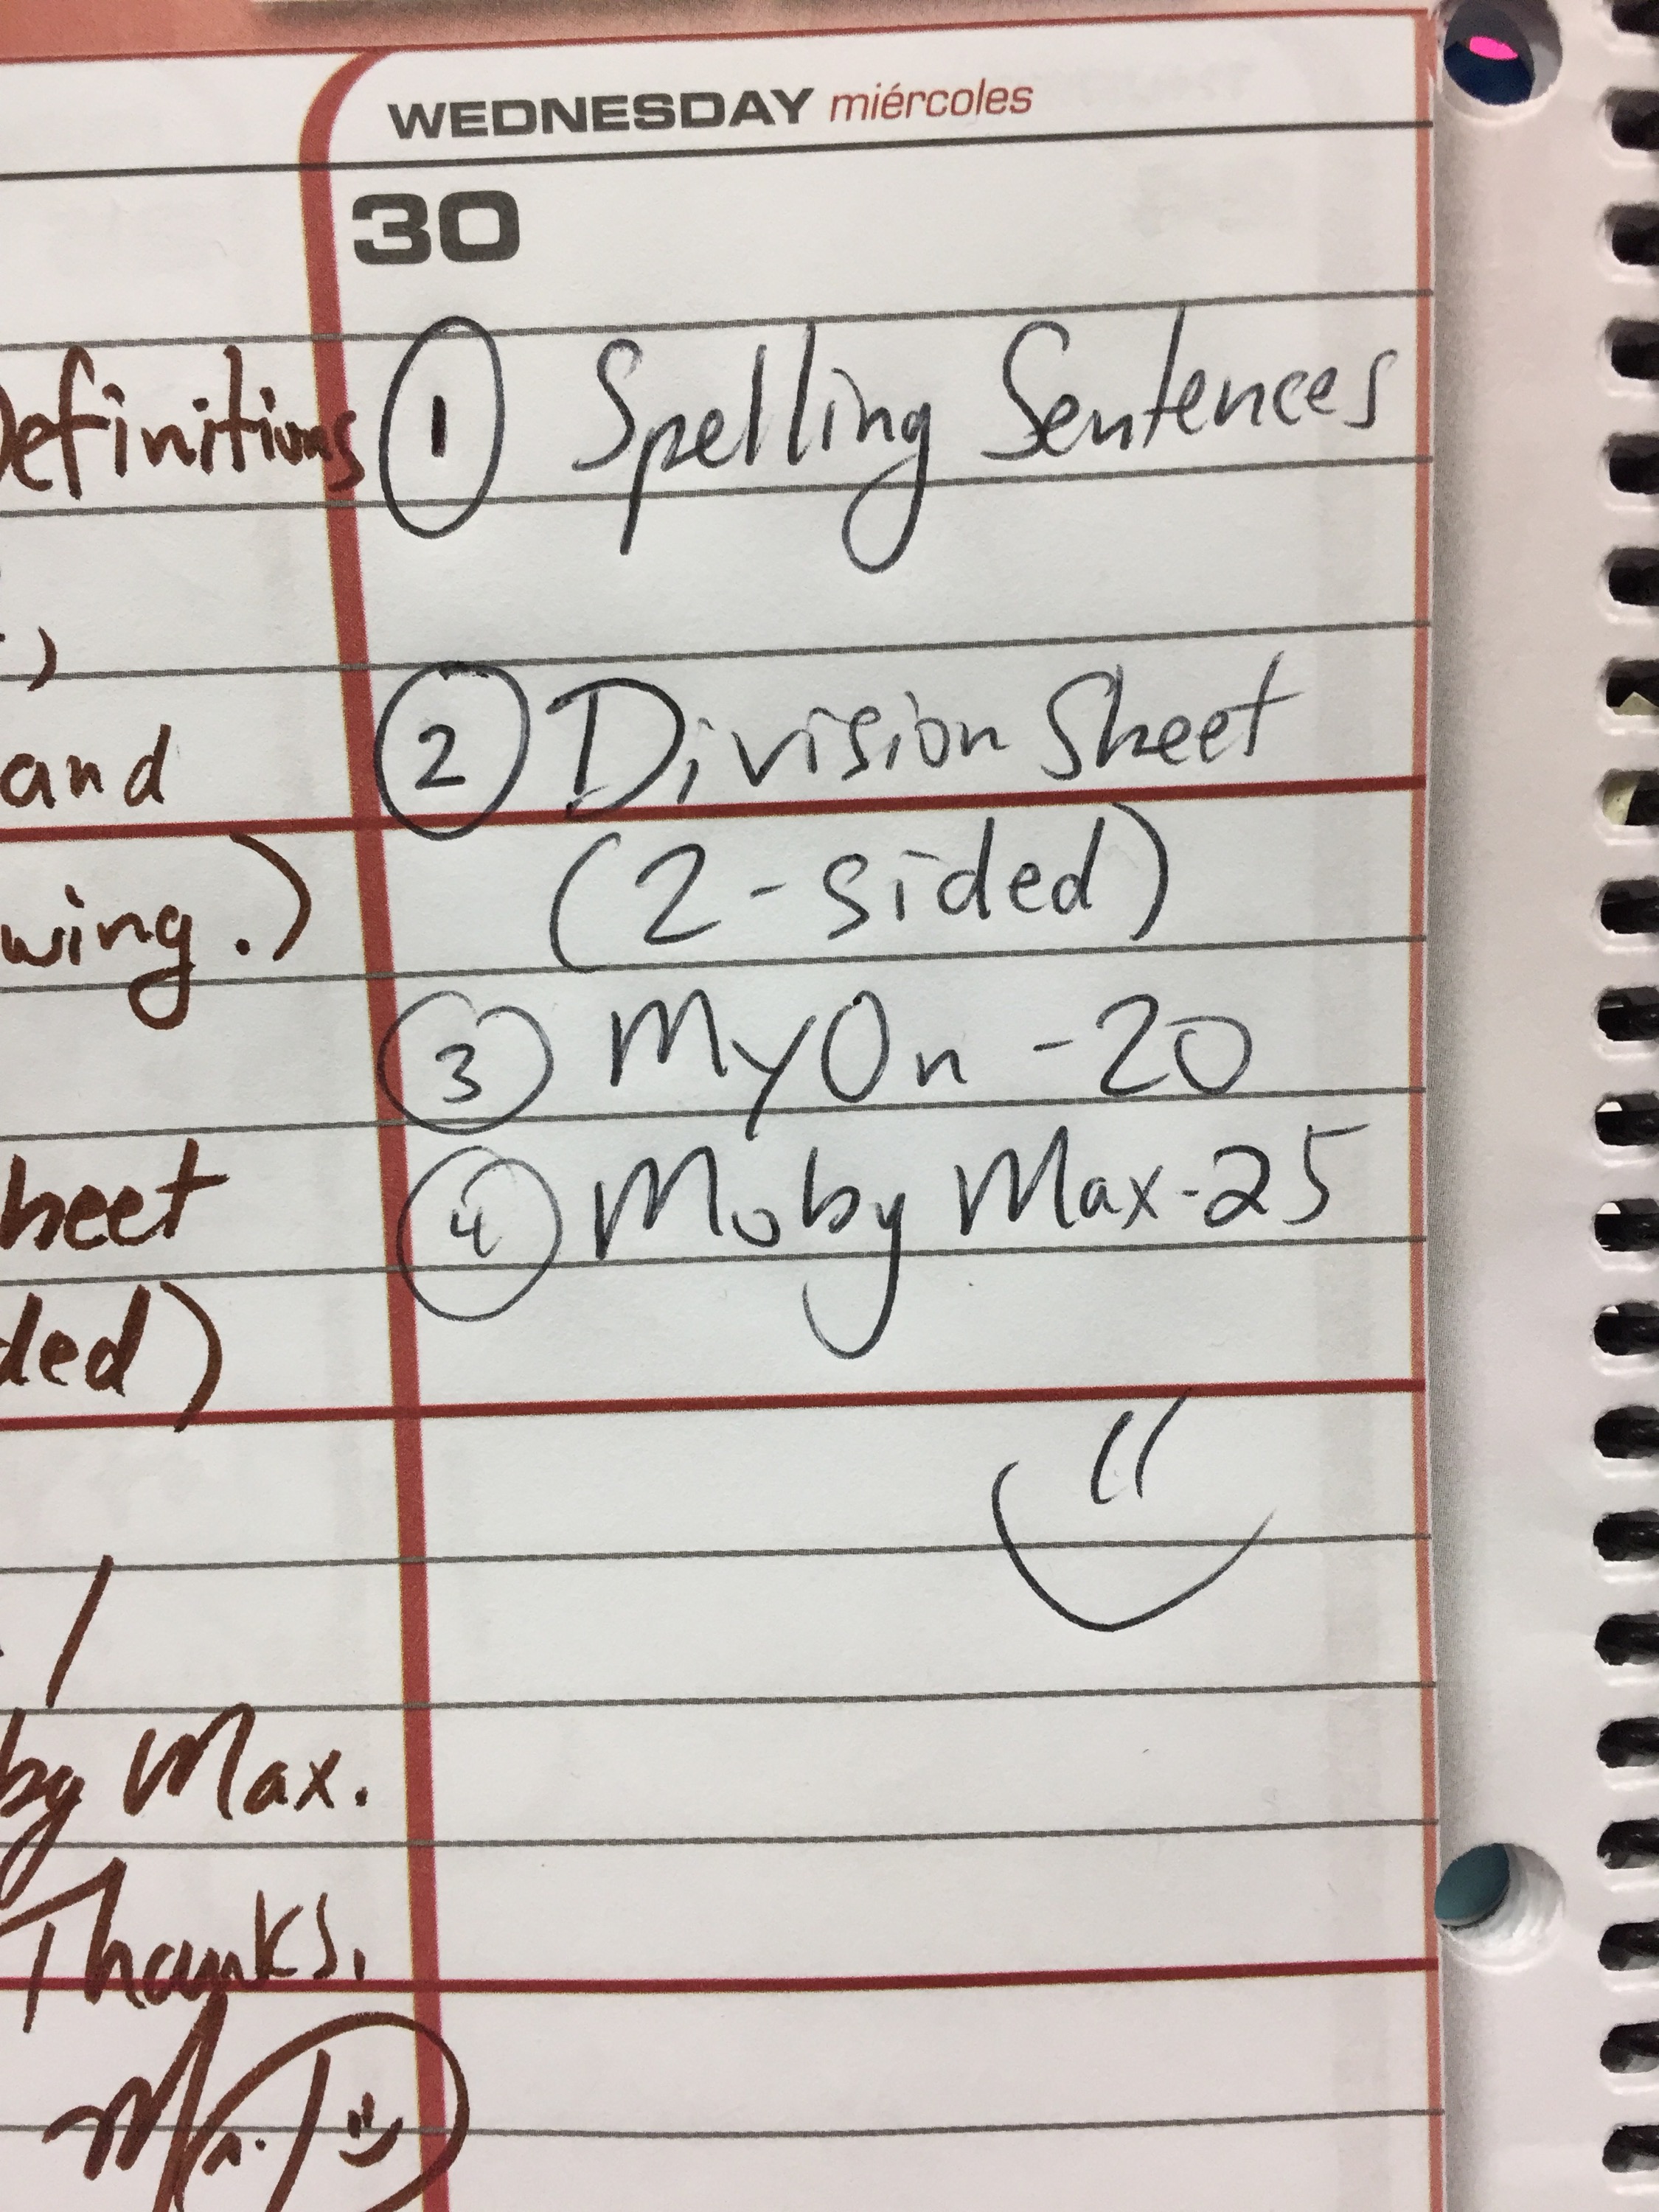 WEDNESDAY miércoles
30
① Spelling Sentences
② Division Sheet
(2-sided)
③ MyOn -20
④ Moby Max-25
Definitions
and
wing.)
heet
ded)
by Max.
Thanks,
Mr. D